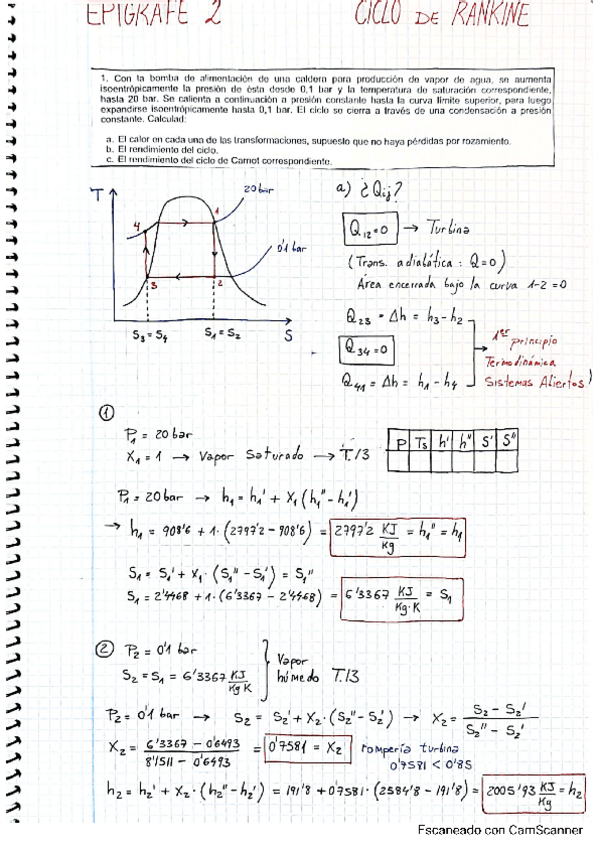 EPIGRAFE 2 CICLO DE RANKINE
1. Con la bomba de alimentación de una caldera para producción de vapor de agua, se aumenta
isoentrópicamente la presión de ésta desde 0,1 bar y la temperatura de saturación correspondiente,
hasta 20 bar. Se calienta a continuación a presión constante hasta la curva límite superior, para luego
expandirse isoentrópicamente hasta 0,1 bar. El ciclo se cierra a través de una condensación a presión
constante. Calculad:
a. El calor en cada una de las transformaciones, supuesto que no haya pérdidas por rozamiento.
b. El rendimiento del ciclo.
c. El rendimiento del ciclo de Carnot correspondiente.
T
20 bar
1
4
0'1 bar
3
2
S₃ = S₄
S₁ = S₂
S
a) ¿Qij?
Q₁₂=0 → Turbina
(Trans. adiabática: Q=0)
Área encerrada bajo la curva 1-2 = 0
Q₂₃ = Δh = h₃-h₂
Q₃₄=0
Q₄₁ = Δh = h₁-h₄
1er principio
Termodinámica
Sistemas Abiertos)
①
P₁ = 20 bar
X₁ = 1 → Vapor Saturado → T.13
P Ts h' h'' S' S''
P₁ = 20 bar → h₁ = h₁' + X₁ (h₁'' - h₁')
→ h₁ = 908'6 + 1·(2797'2 - 908'6) = 2797'2 KJ/Kg = h₁'' = h₁
S₁ = S₁' + X₁· (S₁'' - S₁') = S₁''
S₁ = 2'4468 + 1·(6'3367 - 2'4468) = 6'3367 KJ/Kg·K = S₁
②
P₂ = 0'1 bar
S₂ = S₁ = 6'3367 KJ/Kg K
Vapor
húmedo T.13
P₂ = 0'1 bar → S₂ = S₂' + X₂·(S₂'' - S₂') → X₂ = S₂ - S₂' / S₂'' - S₂'
X₂ = 6'3367 - 0'6493 / 8'1511 - 0'6493 = 0'7581 = X₂ rompería turbina
0'7581 < 0'85
h₂ = h₂' + X₂·(h₂'' - h₂') = 191'8 + 0'7581·(2584'8 - 191'8) = 2005'93 KJ/Kg = h₂
Escaneado con CamScanner